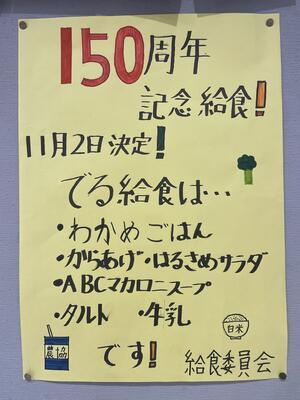 150周年
記念給食!
11月2日決定!
でる給食は…
・わかめごはん
・からあげ・はるさめサラダ
・ABCマカロニスープ
・タルト ・牛乳
です!
農協
白米
給食委員会